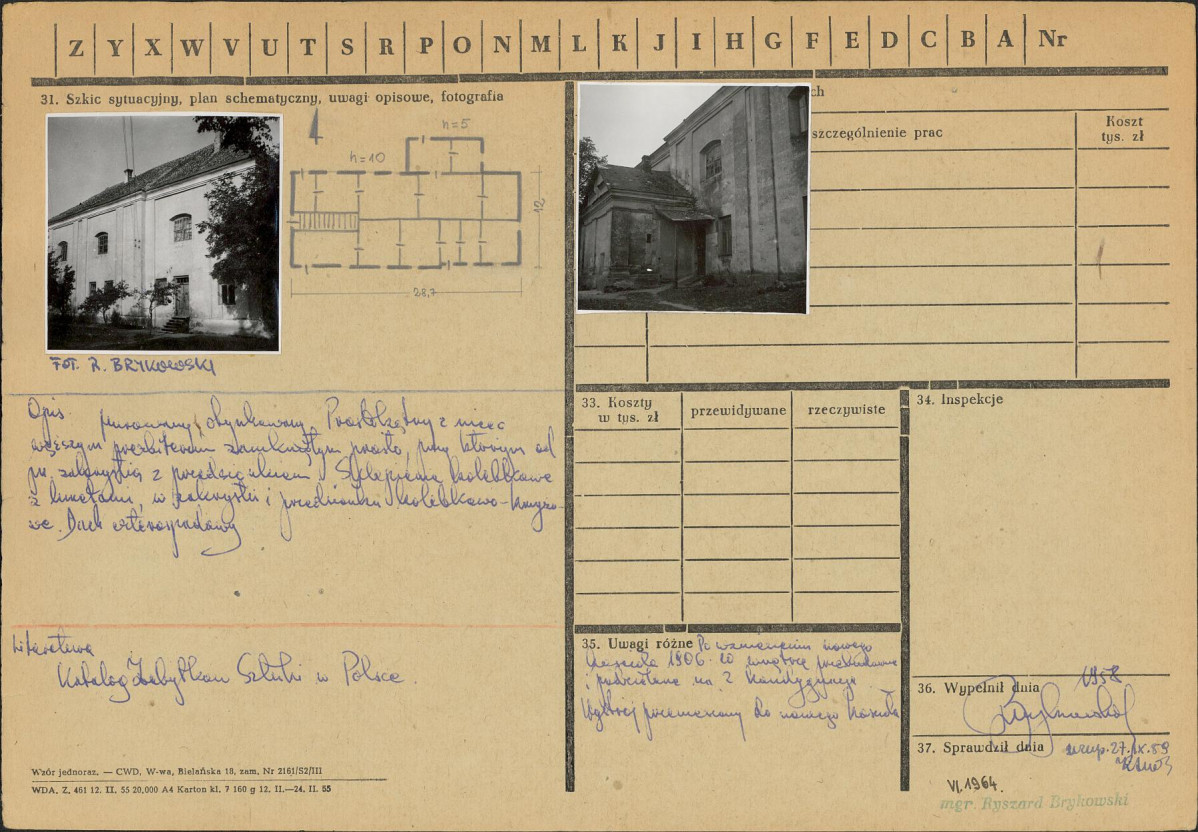 Z Y X W V U T S R P O N M L K J I H G F E D C B A Nr
31. Szkic sytuacyjny, plan schematyczny, uwagi opisowe, fotografia
h=5
h=10
12
28,7
Fot. R. BRYKOWSKI
Opis
murowany, otynkowany. Prostokątny z nieco
węższym prezbiterium zamkniętym prosto, przy którym od
pn. zakrystia z przedsionkiem. Sklepienia kolebkowe
z lunetami, w zakrystii i przedsionku kolebkowo-krzyżo-
we. Dach czterospadowy
Literatura
Katalog Zabytków Sztuki w Polsce.
Wzór jednoraz. — CWD, W-wa, Bielańska 18, zam. Nr 2161/S2/III
WDA. Z. 461 12. II. 55 20,000 A4 Karton kl. 7 160 g 12. II.—24. II. 55
ch
szczególnienie prac
Koszt
tys. zł
33. Koszty
w tys. zł
przewidywane
rzeczywiste
34. Inspekcje
35. Uwagi różne Po wzniesieniu nowego
kościoła 1906 r. wnętrze przebudowane
i podzielone na 2 kondygnacje
Wystrój przeniesiony do nowego kościoła
36. Wypełnił dnia 1958
37. Sprawdził dnia 27.IX.59
VI.1964.
mgr. Ryszard Brykowski